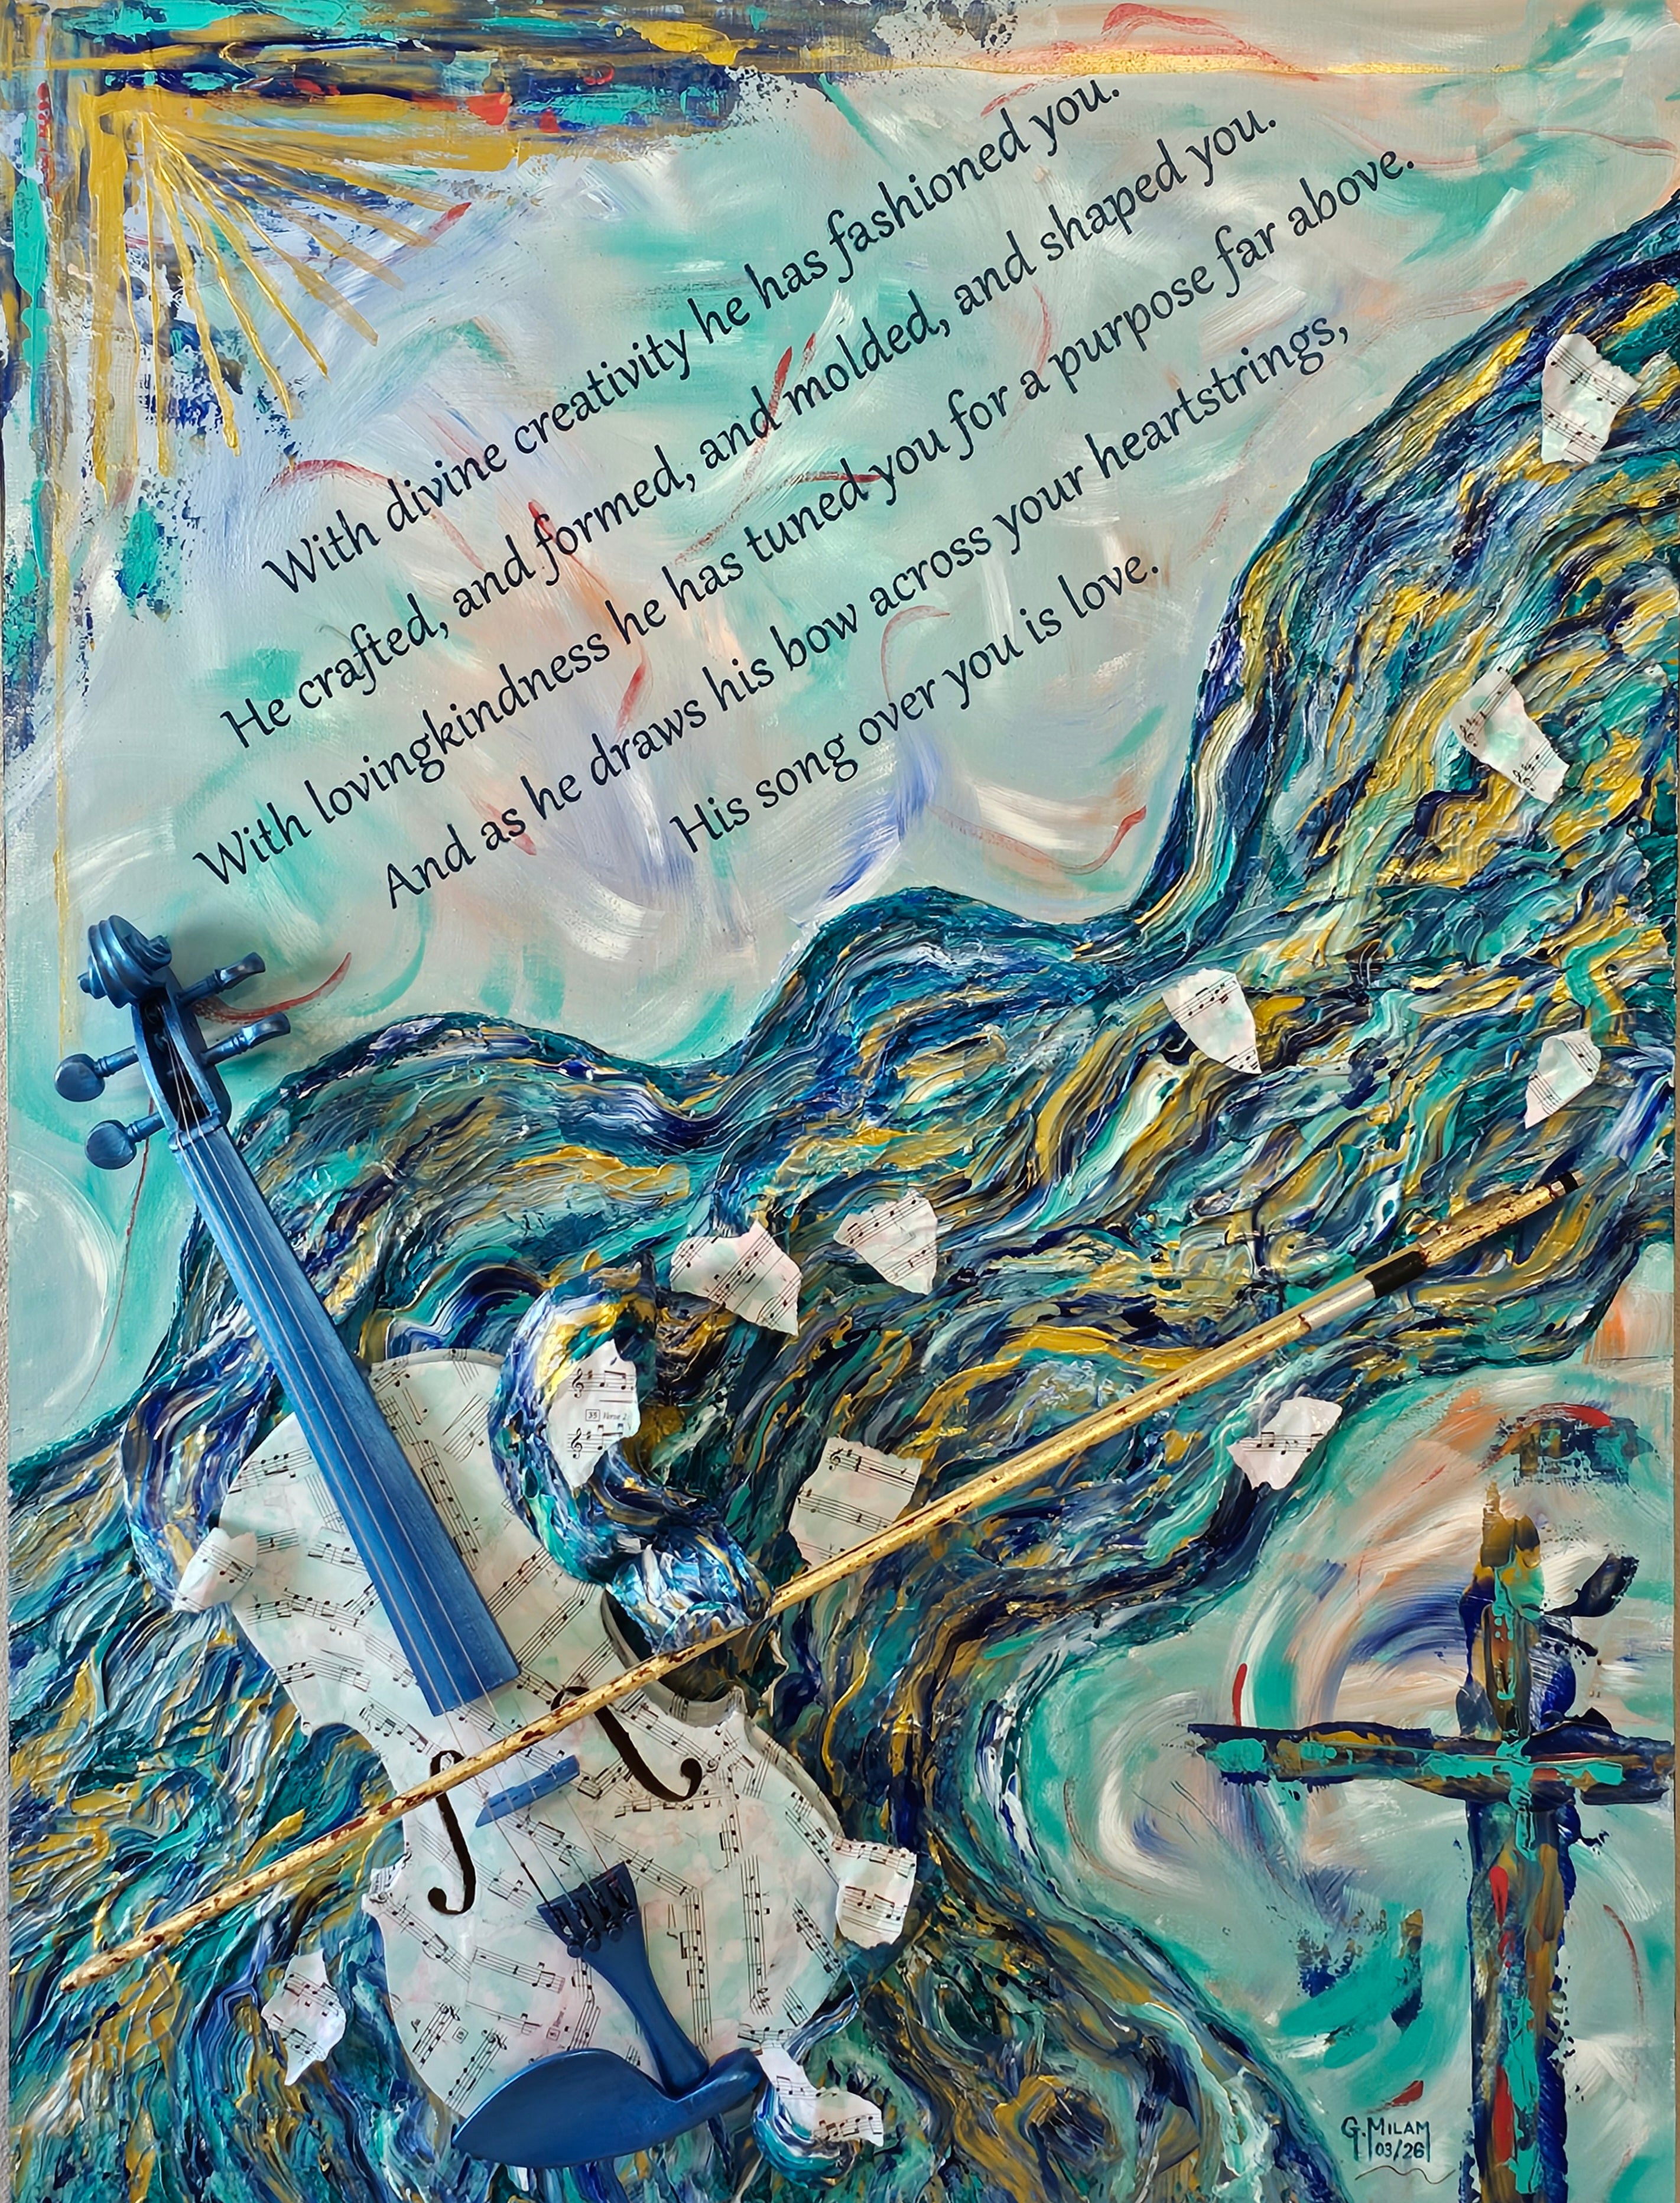 With divine creativity he has fashioned you.
He crafted, and formed, and molded, and shaped you.
With lovingkindness he has tuned you for a purpose far above.
And as he draws his bow across your heartstrings,
His song over you is love.
35 Verse 2
G. MILAM
03/26